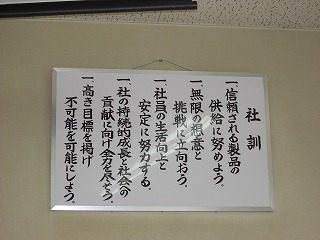 社訓
一、信頼される製品の
供給に努めよう。
一、無限の想意と
挑戦に立向おう。
一、社員の生活向上と
安定に努力する。
一、社の持続的成長と社会の
貢献に向け全力を尽そう。
一、高き目標を掲げ
不可能を可能にしよう。